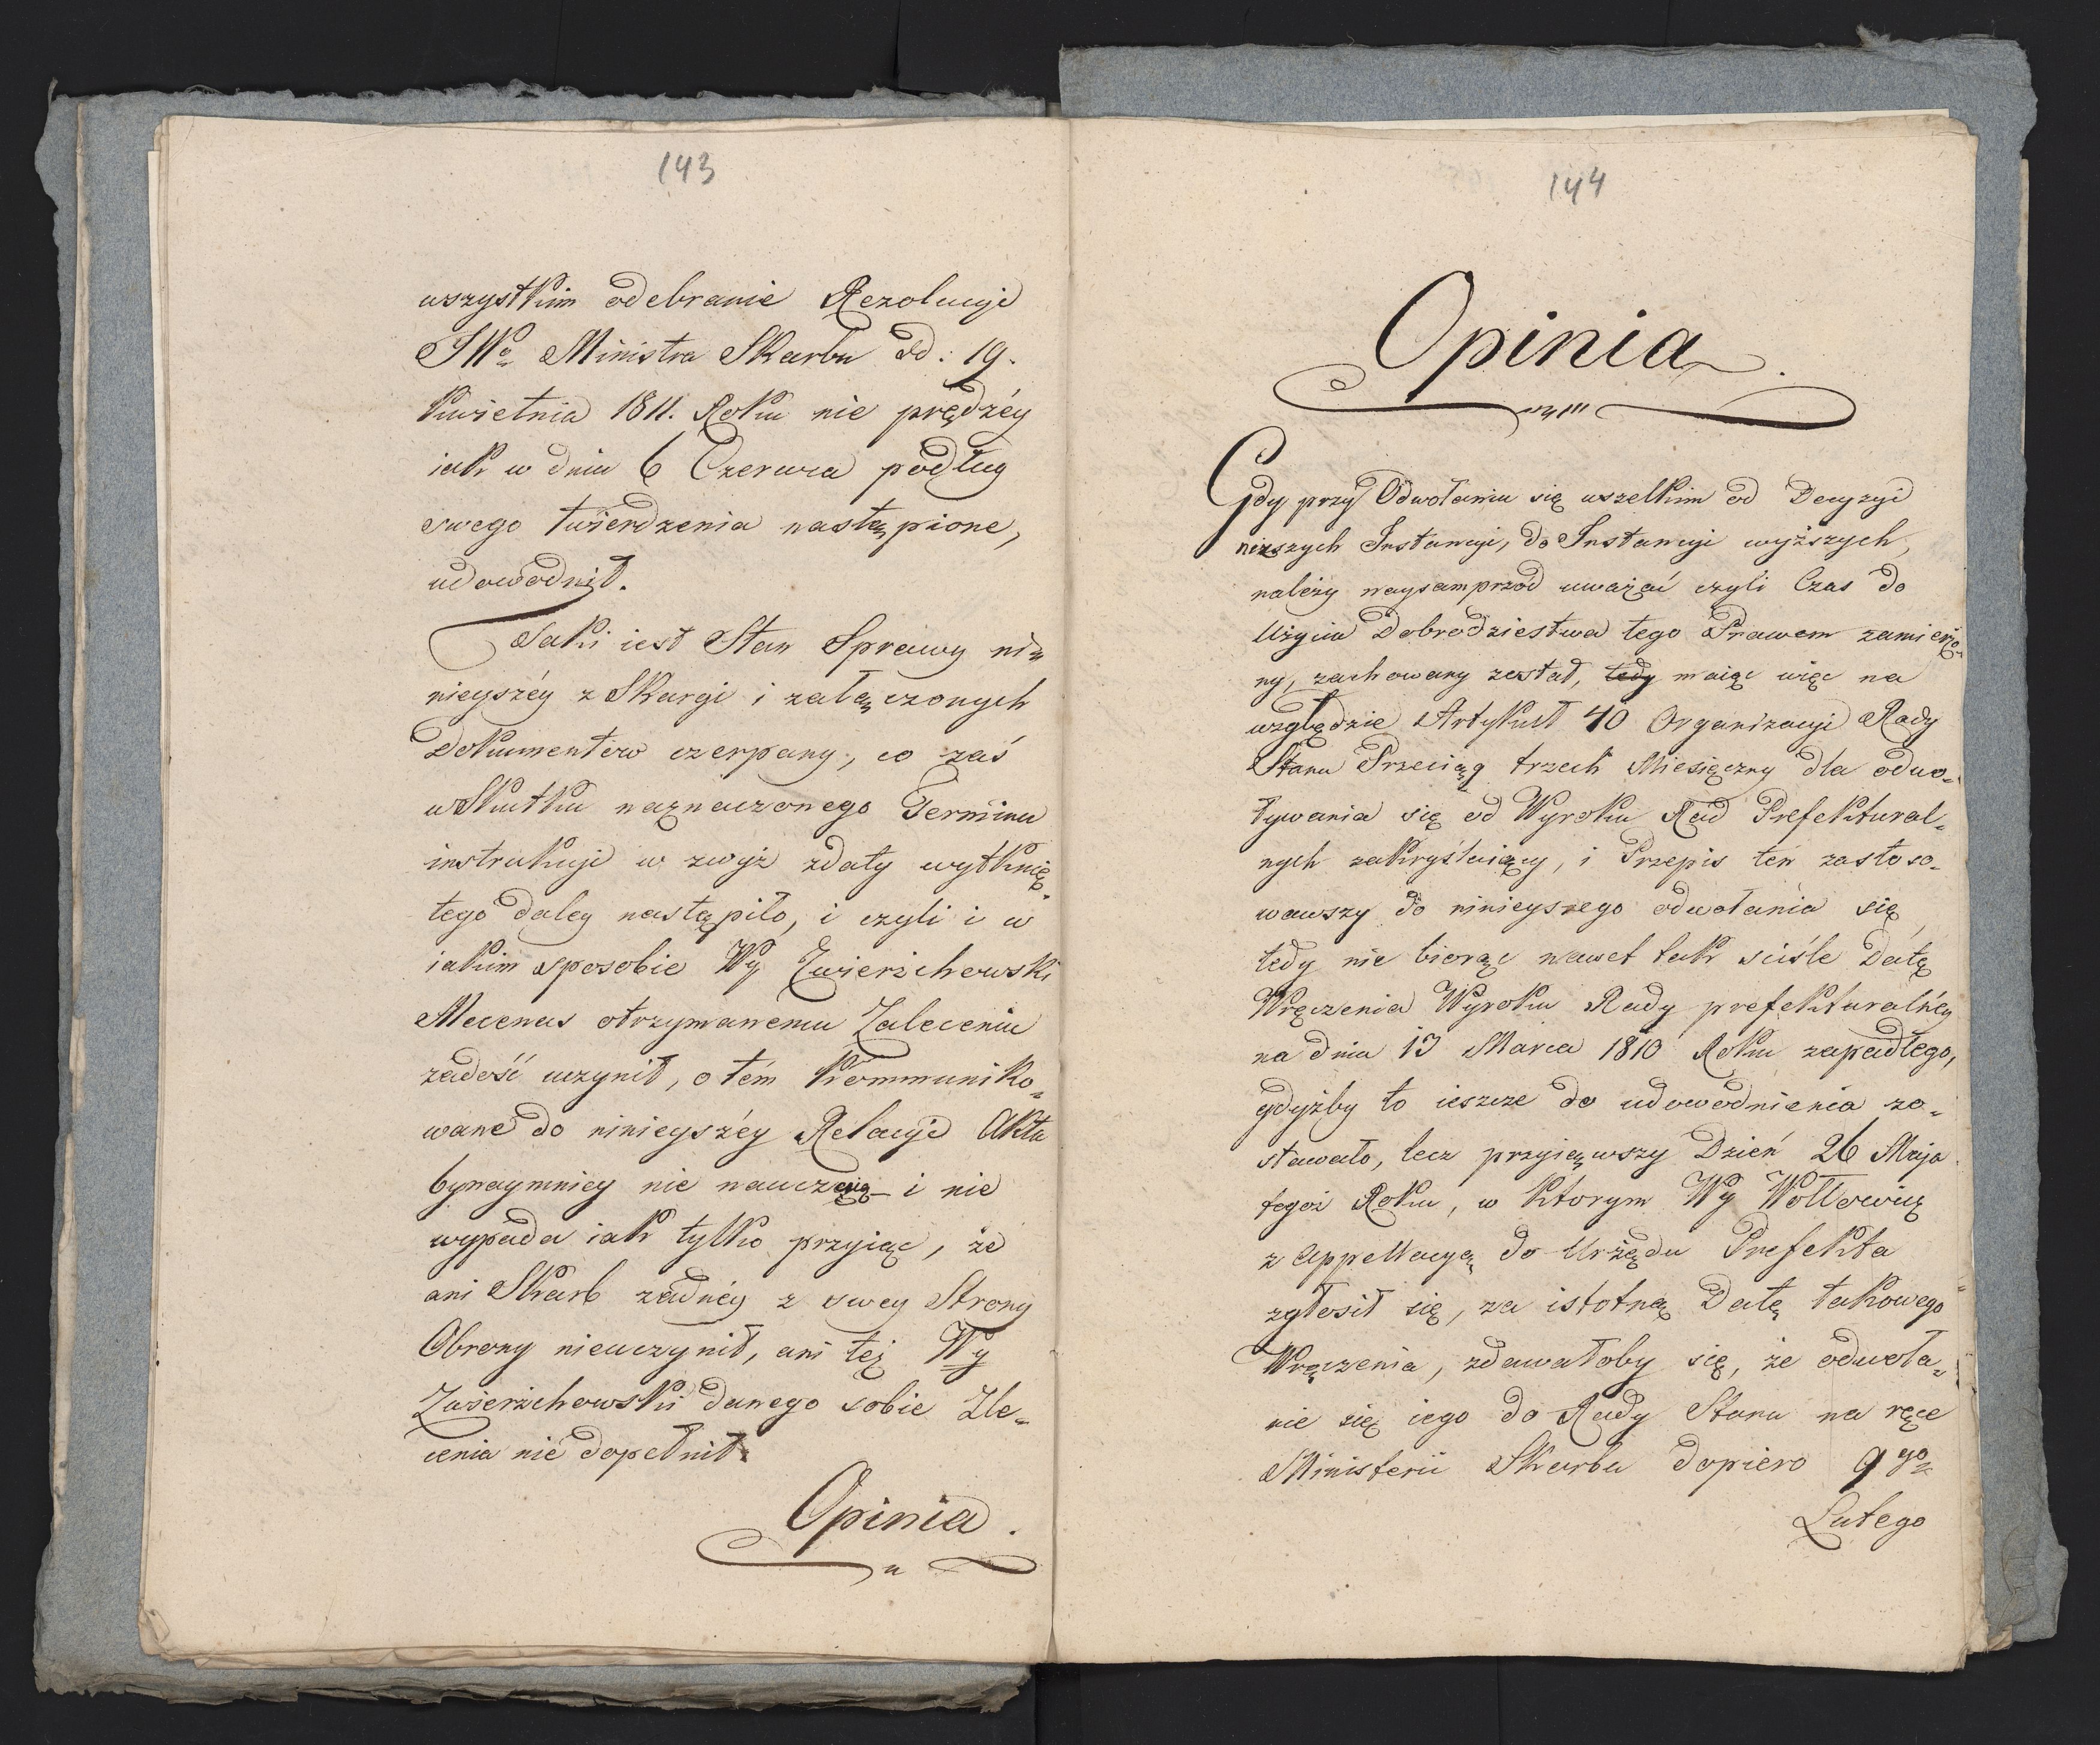 143
wszystkim odebranie Rezolucyi
JWo Ministra Skarbu dd: 19.
Kwietnia 1811. Roku nie prędzéy
iak w dniu 6 Czerwca podług
swego twierdzenia nastąpione,
udowodnił.
Taki iest Stan Sprawy ni„
nieyszéy z Skargi i załączonych
Dokumentów czerpany, co zaś
w Skutku naznaczonego Terminu
instrukcyi w zwyż zdaty wytknię„
tego daley nastąpiło, i czyli i w
iakim sposobie Wy Zwierzchowski
Mecenas otrzymanemu Zaleceniu
zadość uczynił, o tém Kommuniko„
wane do ninieyszéy Relacyi Akta
bynaymniey nie nauczaią i nie
wypada iak tylko przyiąć, że
ani Skarb żadnéy z swey Strony
Obrony nieuczynił, ani też Wy
Zwierzchowski danego sobie Zle„
cenia nie dopełnił.
Opinia.
144
Opinia.
Gdy przy Odwołaniu się wszelkim od Decyzyi
niższych Instancyi, do Instancyi wyższych,
należy naysamprzód uważać czyli Czas do
Użycia Dobrodzieystwa tego Prawem zamierzo„
ny, zachowany został, tedy maiąc więc na
względzie Artykuł 40 Organizacyi Rady
Stanu Przeciąg trzech Miesięczny dla odwo„
ływania się od Wyroku Rad Prefektural„
nych zakryślaiący, i Przepis ten zastoso„
wawszy do ninieyszego odwołania się,
tedy nie biorąc nawet tak ściśle Datę
Wręczenia Wyroku Rady prefekturalnéy
na dniu 13 Marca 1810 Roku zapadłego,
gdyżby to ieszcze do udowodnienia zo„
stawało, lecz przyiąwszy Dzień 26 Maja
tegoż Roku, w którym Wy Wołłowicz
z Appellacyą do Urzędu Prefekta
zgłosił się, za istotną Datę takowego
Wręczenia, zdawałoby się, że odwoła„
nie się iego do Rady Stanu na ręce
Ministerii Skarbu dopiero 9go
Lutego